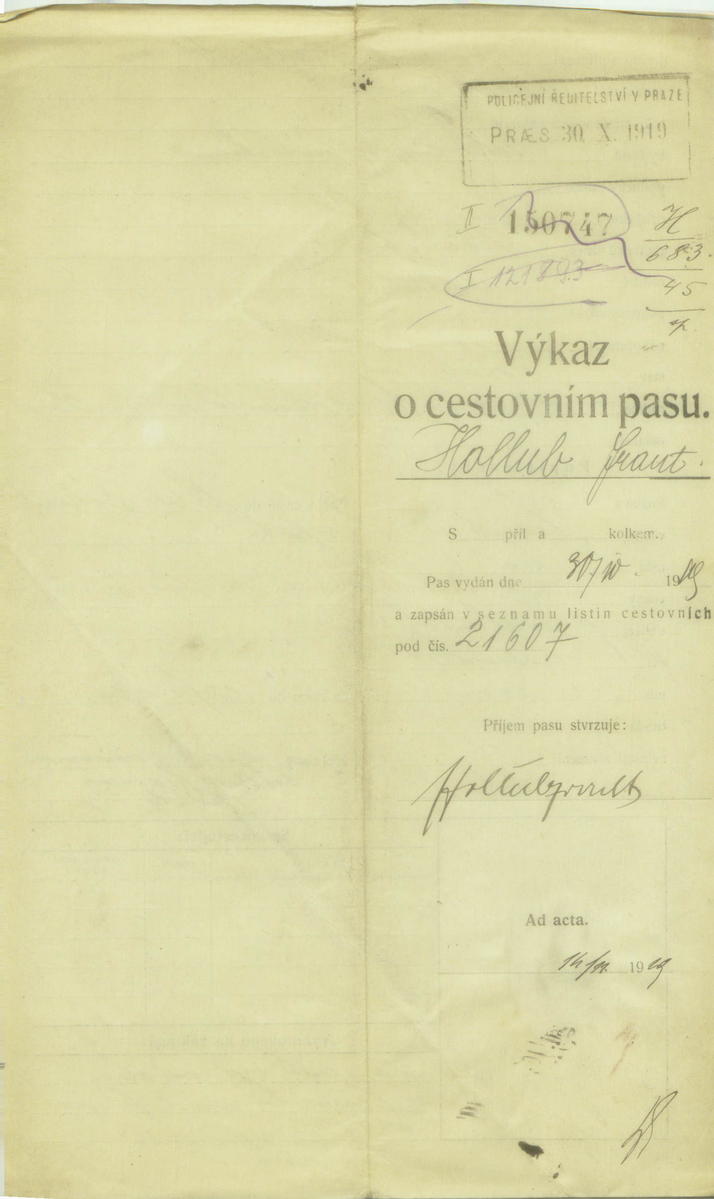 POLICEJNÍ ŘEDITELSTVÍ V PRAZE
PRÆS 30. X. 1919
II 150747
H
683
45
I 121893
Výkaz
o cestovním pasu.
Hollub Frant.
S příl a kolkem.
Pas vydán dne 30/10 1919
a zapsán v seznamu listin cestovních
pod čís. 21607
Příjem pasu stvrzuje:
Ad acta.
1919